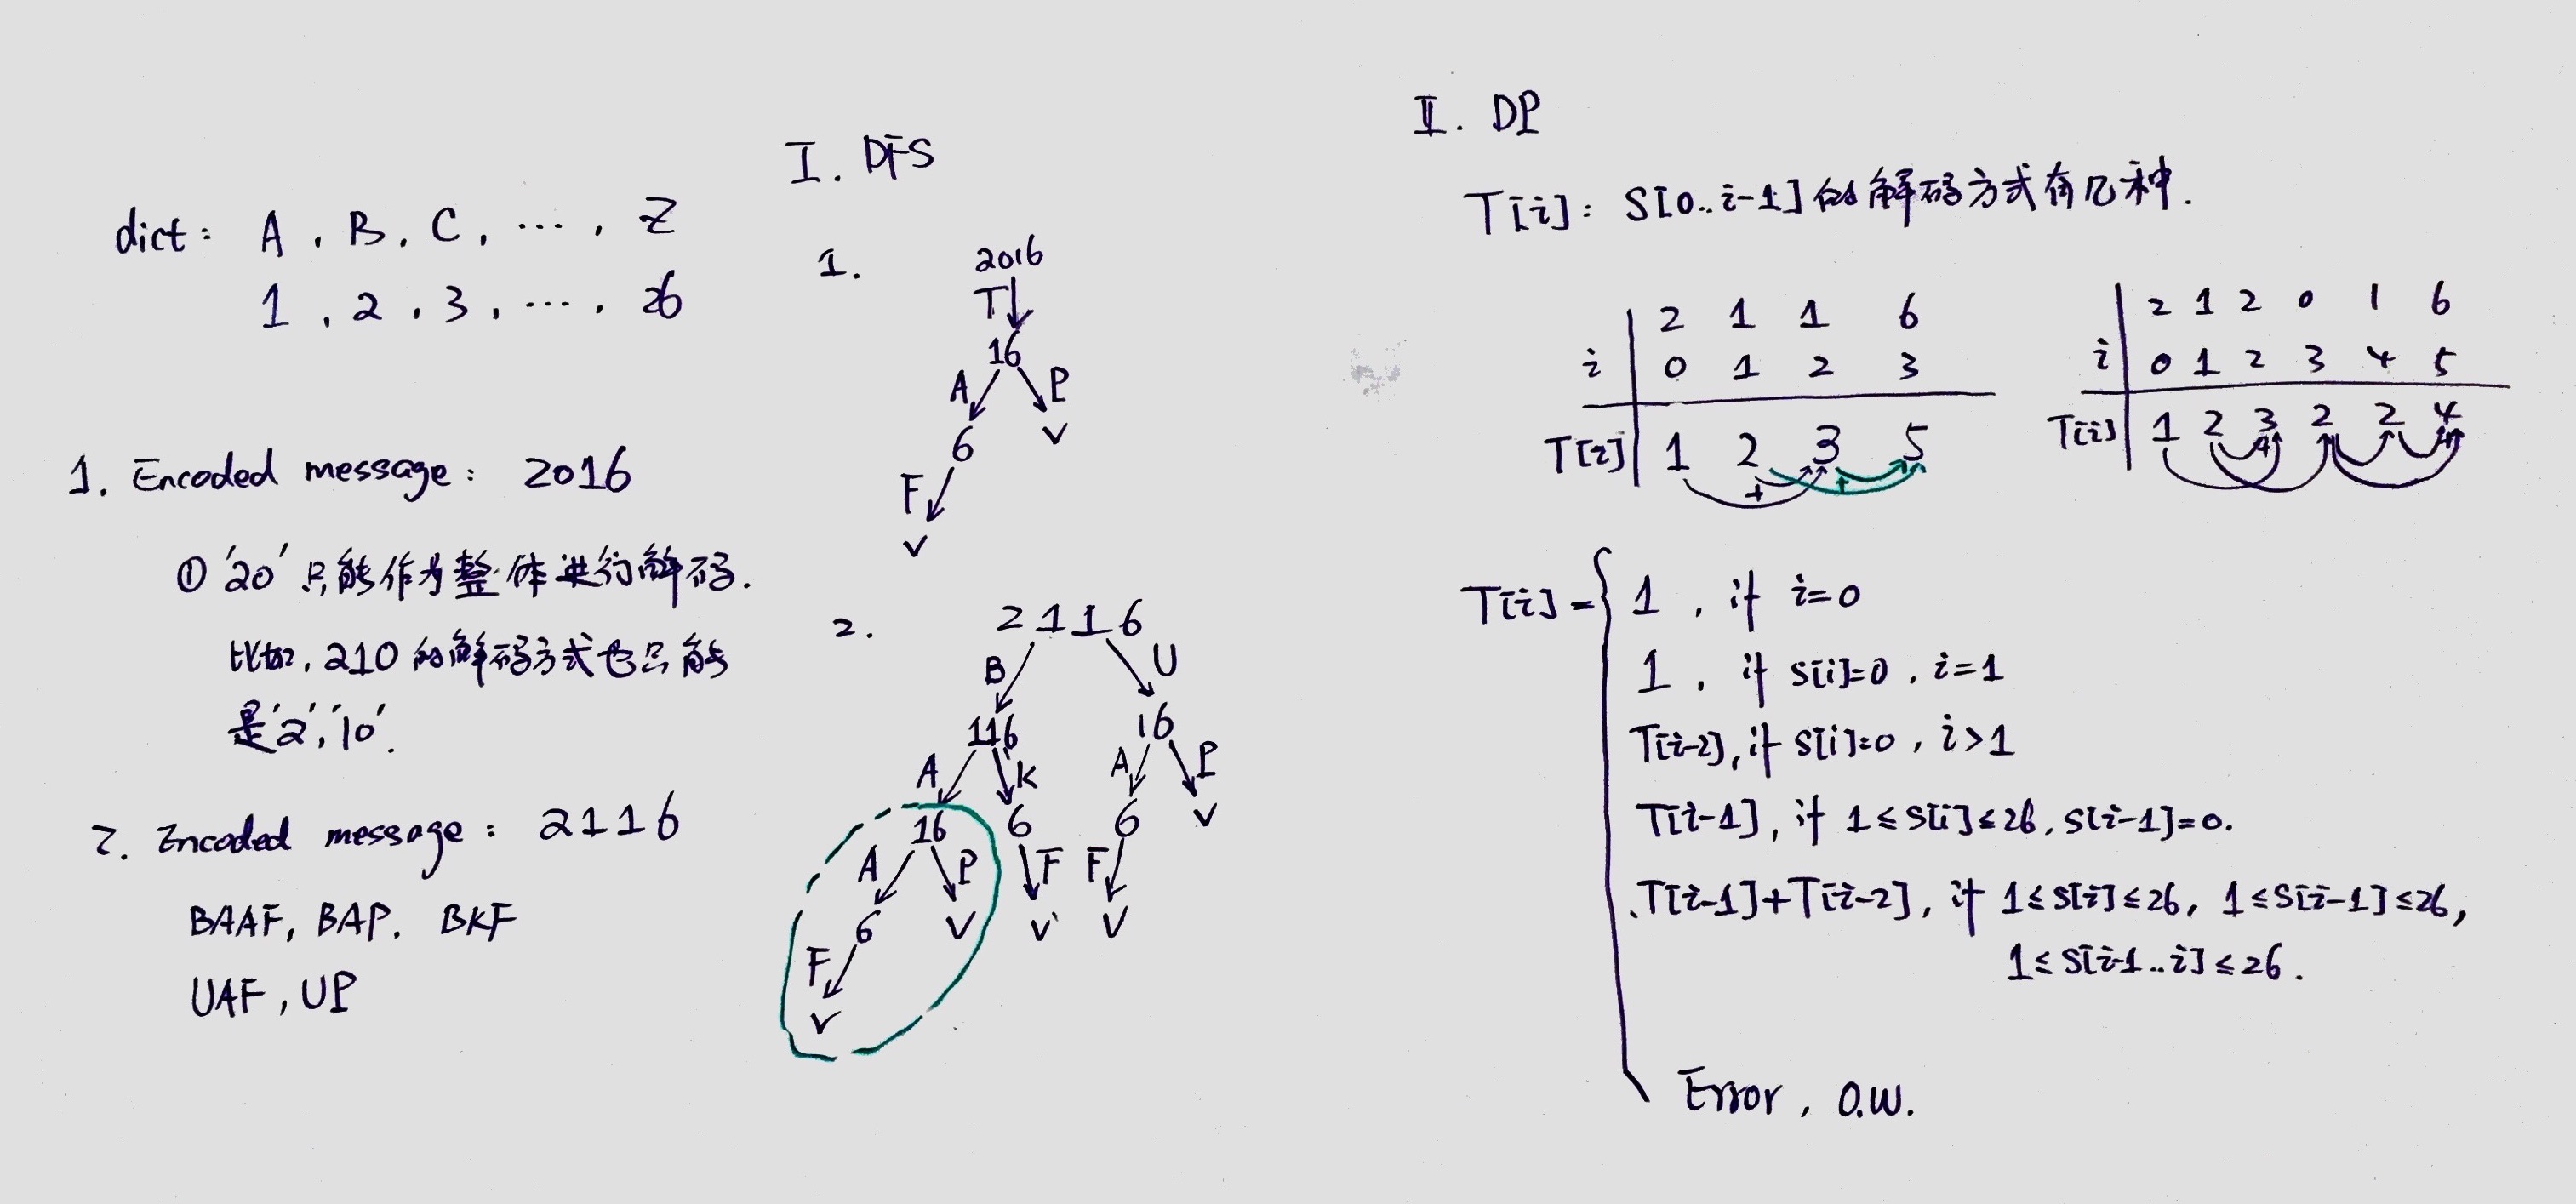 dict: A, B, C, ..., Z
1, 2, 3, ..., 26
1. Encoded message: 2016
① '20' 只能作为整体进行解码.
比如, 210 的解码方式也只能
是'2', '10'.
2. Encoded message: 2116
BAAF, BAP, BKF
UAF, UP
I. DFS
1.
2016
T
16
A P
6 v
F
v
2. 2116
B U
116 16
A K A P
16 6 6 v
A P F F
6 v v v
F
v
II. DP
T[i]: S[0..i-1] 的解码方式有几种.
2 1 1 6
i 0 1 2 3
T[i] 1 2 3 5
+ +
2 1 2 0 1 6
i 0 1 2 3 4 5
T[i] 1 2 3 2 2 4
T[i] = 1, if i=0
1, if s[i]=0, i=1
T[i-2], if s[i]=0, i>1
T[i-1], if 1≤s[i]≤26, s[i-1]=0.
T[i-1]+T[i-2], if 1≤s[i]≤26, 1≤s[i-1]≤26,
1≤s[i-1..i]≤26.
Error, O.W.